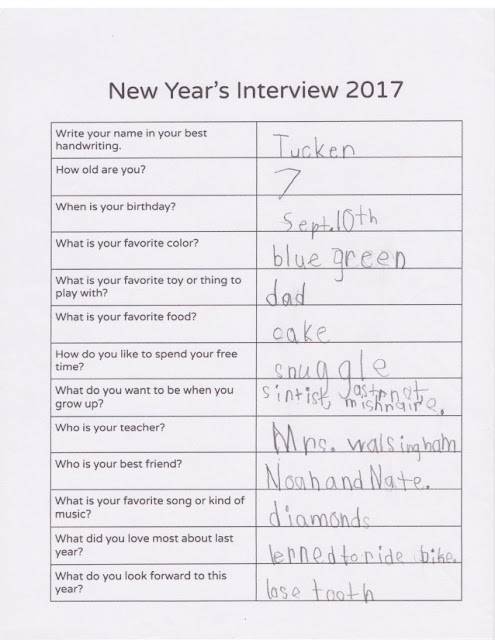 New Year's Interview 2017
Write your name in your best
handwriting.
Tucker
How old are you?
7
When is your birthday?
Sept. 10th
What is your favorite color?
blue green
What is your favorite toy or thing to
play with?
dad
What is your favorite food?
cake
How do you like to spend your free
time?
snuggle
What do you want to be when you
grow up?
sintist, astrnot
mishnaire.
Who is your teacher?
Mrs. walsingham
Who is your best friend?
Noah and Nate.
What is your favorite song or kind of
music?
diamonds
What did you love most about last
year?
lerned to ride bike.
What do you look forward to this
year?
lose tooth